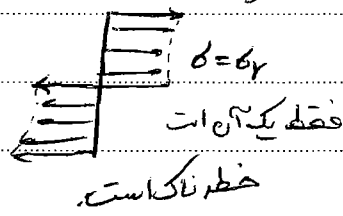 σ = σy
فقط یک آن است
خطرناک است.